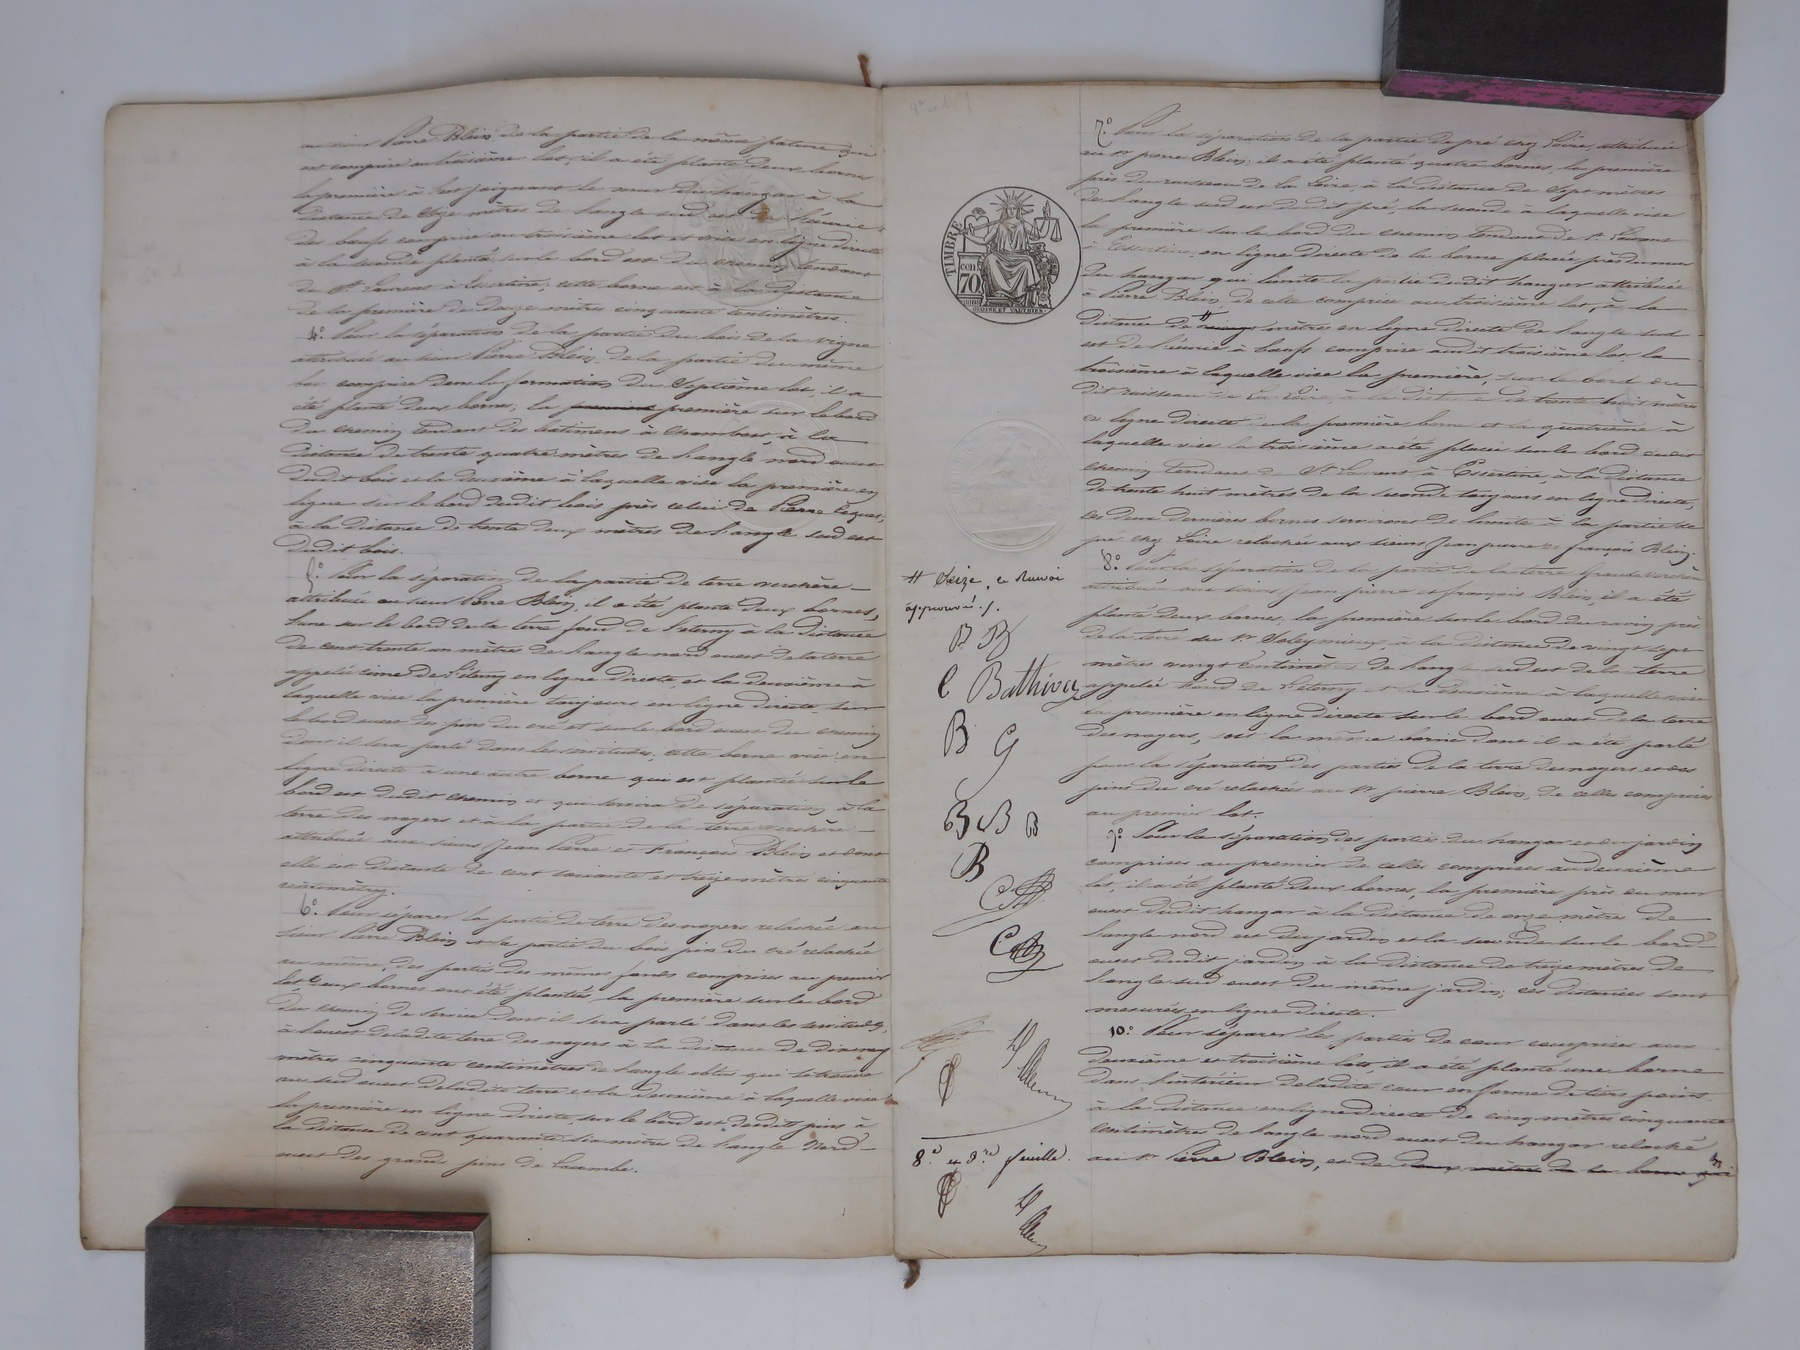 au sieur Pierre Blein de la partie de la même pature qui
est comprise au troisième lot, il a été planté deux bornes
la première à l'est joignant le mur du hangar à la
distance de onze mètres de l'angle sud est de l'écurie
des bœufs comprise au troisième lot et vise en ligne directe
à la seconde plantée sur le bord est du chemin tendant
de St Laurent à Essertine, cette borne est à la distance
de la première de douze mètres cinquante centimètres.
4.° Pour la séparation de la partie du bois de la vigne
attribuée au sieur Pierre Blein, de la partie du même
bois comprise dans la formation du septième lot, il a
été planté deux bornes, la première sur le bord
du chemin tendant des batimens à Chambost, à la
distance de trente quatre mètres de l'angle nord ouest
dudit bois et la deuxième à laquelle vise la première en
ligne sur le bord dudit bois près celui de Pierre
à la distance de trente deux mètres de l'angle sud est
dudit bois.
5.° Pour la séparation de la partie de terre verchère
attribuée au sieur Pierre Blein, il a été planté deux bornes,
l'une sur le bord de la terre fond de l'étang à la distance
de cent trente un mètres de l'angle nord ouest de la terre
appelée cime de l'étang en ligne directe, et la deuxième à
laquelle vise la première toujours en ligne directe, sur
le bord ouest des pins du cré et sur le bord ouest du chemin
dont il sera parlé dans les servitudes, cette borne vise en
ligne directe à une autre borne qui est plantée sur le
bord est dudit chemin et qui servira de séparation, à la
terre des noyers et à la partie de la terre verchère
attribuée aux sieurs Jean Pierre et François Blein et dont
elle est distante de cent soixante et treize mètres cinquante
centimètres.
6.° Pour séparer la partie de terre des noyers relachée au
sieur Pierre Blein et la partie du bois pins du cré relachée
au même, des parties des mêmes fonds comprises au premier
lot, deux bornes ont été plantées, la première sur le bord
du chemin de service dont il sera parlé dans les servitudes,
à l'ouest de ladite terre des noyers à la distance de dix neuf
mètres cinquante centimètres de l'angle obtus qui se trouve
au sud ouest de ladite terre et la deuxième à laquelle vise
la première en ligne directe, sur le bord est desdits pins à
la distance de cent quarante six mètres de l'angle Nord
ouest des grands pins de
7.° Pour la séparation de la partie de pré chez Loire, attribuée
au Sr pierre Blein, il a été planté quatre bornes, la première
près du ruisseau de la Loire, à la distance de sept mètres
de l'angle sud est dudit pré, la seconde à laquelle vise
la première sur le bord du chemin tendant de St Laurent
à Essertine, en ligne directe de la borne placée près du mur
du hangar qui limite la partie dudit hangar attribuée
à Pierre Blein de celle comprise au troisième lot, à la
distance de # mètres en ligne directe de l'angle sud
est de l'écurie à bœufs comprise audit troisième lot, la
troisième à laquelle vise la première, sur le bord du
dit ruisseau de La Loire, à la distance de trente huit mètres
en ligne directe de la première borne et la quatrième à
laquelle vise la troisième a été placée sur le bord ouest
chemin tendant de St Laurent à Essertine, à la distance
de trente huit mètres de la seconde toujours en ligne directe,
ces deux dernières bornes serviront de limite à la partie de
pré chez Loire relachée aux sieurs Jean pierre et françois Blein.
8.° Pour la séparation de la partie de la terre Grande verchère
attribuée aux sieurs Jean pierre et françois Blein, il a été
planté deux bornes, la première sur le bord du ravin près
de la terre du Sr Soleymieux, à la distance de vingt sept
mètres vingt centimètres de l'angle sud est de la terre
appelée fond de l'étang et la deuxième à laquelle vise
la première en ligne directe sur le bord ouest de la terre
des noyers, soit la même borne dont il a été parlé
pour la séparation des parties de la terre des noyers et des
pins du cré relachées au Sr pierre Blein, de celles comprises
au premier lot.
9.° Pour la séparation des parties du hangar et du jardin
comprises au premier de celles comprises au deuxième
lot, il a été planté deux bornes, la première près du mur
ouest dudit hangar à la distance de onze mètres de
l'angle nord est du jardin et la seconde sur le bord
ouest dudit jardin à la distance de treize mètres de
l'angle sud ouest du même jardin; ces distances sont
mesurées en ligne directe.
10.° Pour séparer les parties de cour comprises aux
deuxième et troisième lots, il a été planté une borne
dans l'intérieur de ladite cour en forme de tiers point
à la distance en ligne directe de cinq mètres cinquante
centimètres de l'angle nord ouest du hangar relaché
au Sr Pierre Blein, et de deux mètres de la borne qui
TIMBRE
CON.
70
OUDINÉ ET VAUTHIER
# Seize, ce Renvoi
approuvé ./.
P. B
C Bathivey
B G
B B B
B
8.e et d.re feuille.